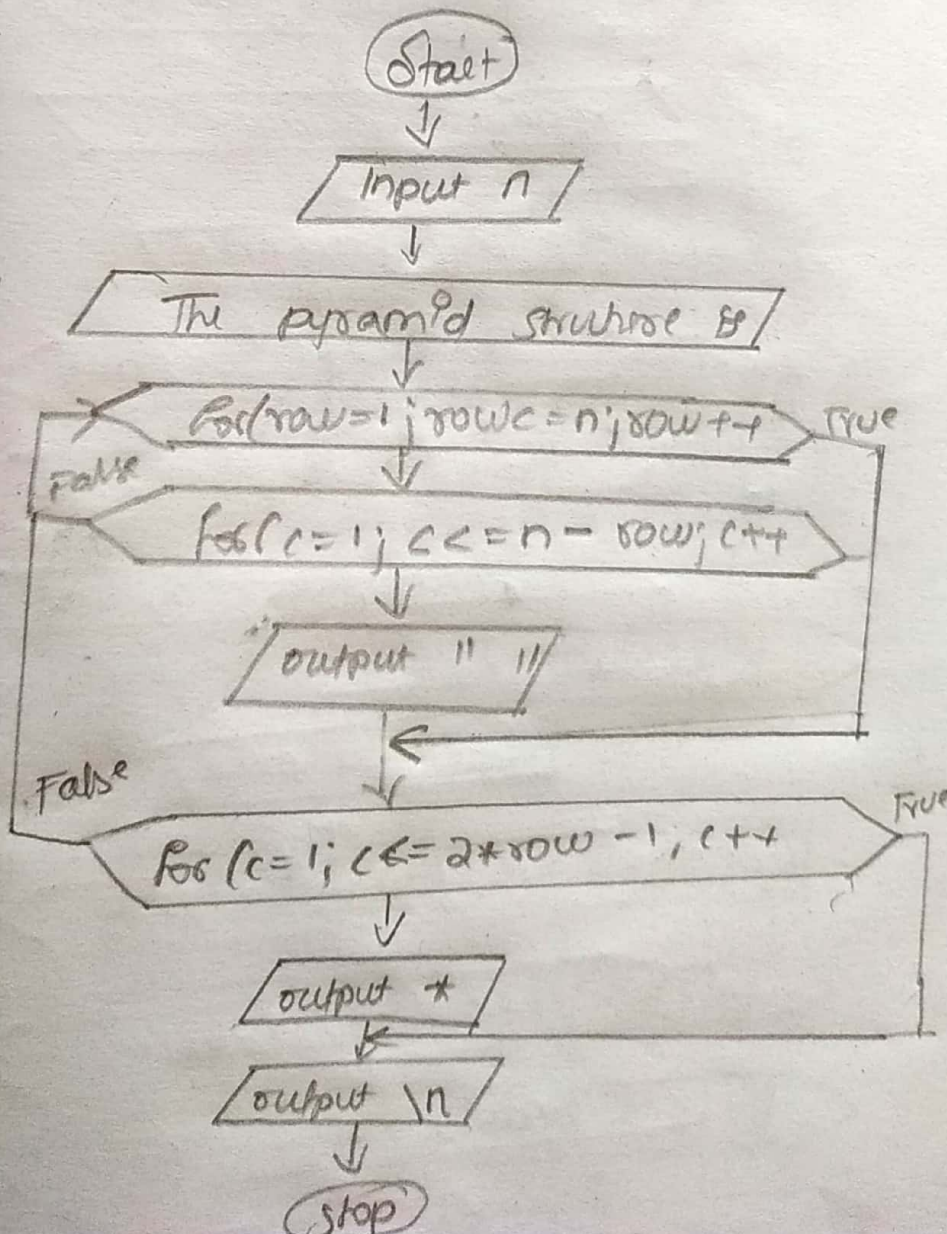 Start
Input n
The pyramid structure is
for(row=1; row<=n; row++
True
False
for(c=1; c<=n- row; c++
output " "
False
True
for (c=1; c<=2*row-1, c++
output *
output \n
stop